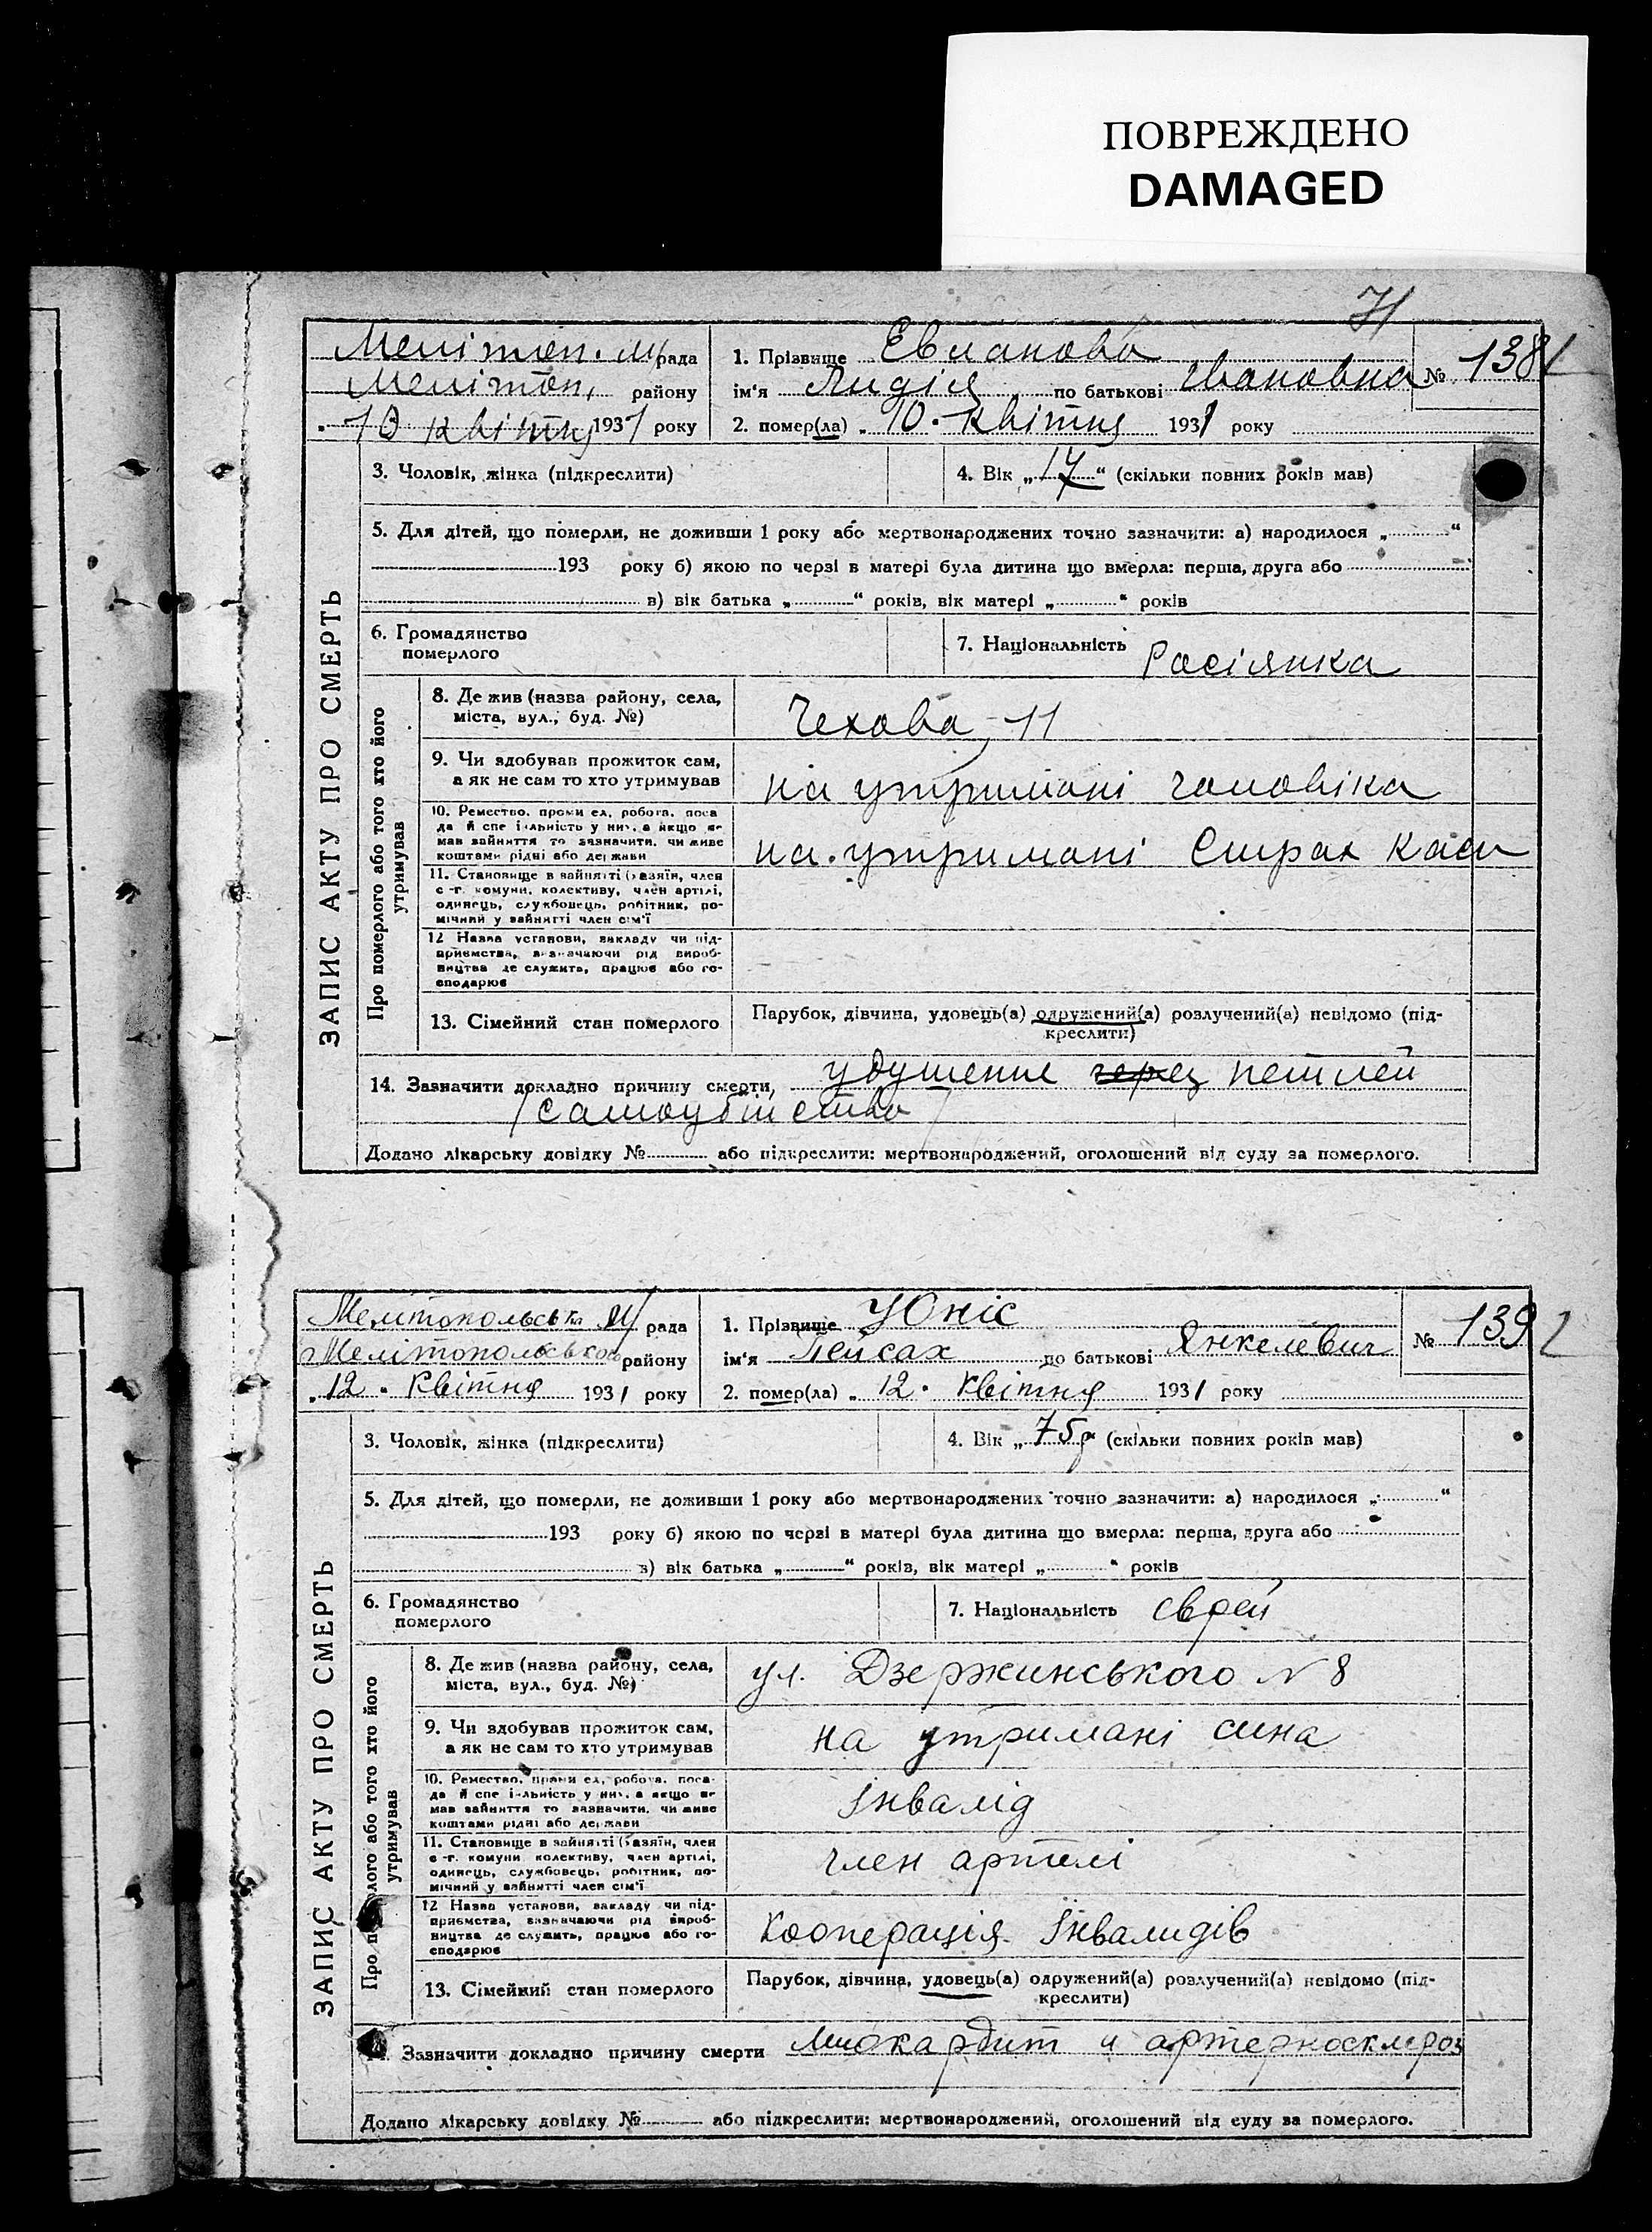 ПОВРЕЖДЕНО
DAMAGED
71
Мелітоп. м/рада
Мелітоп. району
„ 10 квітня 1931 року
1. Прізвище Евланова
ім'я Лидія по батькові Івановна
№ 138
2. помер(ла) „ 10 . квітня 1931 року
ЗАПИС АКТУ ПРО СМЕРТЬ
3. Чоловік, жінка (підкреслити)
4. Вік „ 17 “ (скільки повних років мав)
5. Для дітей, що померли, не доживши 1 року або мертвонароджених точно зазначити: а) народилося „ “
193 року б) якою по черзі в матері була дитина що вмерла: перша, друга або
в) вік батька „ “ років, вік матері „ “ років
6. Громадянство
померлого
7. Національність Росіянка
Про померлого або того хто його
утримував
8. Де жив (назва району, села,
міста, вул., буд. №)
Чехова, 11
9. Чи здобував прожиток сам,
а як не сам то хто утримував
на утримані чоловіка
10. Ремество, промисел, робота, поса
да й спеціальність у них, а якщо не
мав зайняття то зазначити, чи живе
коштами рідні або держави
на утримані Страх каси
11. Становище в зайнятті (хазяїн, член
с.-г. комуни, колективу, член артілі,
одинець, службовець, робітник, по-
мічний у зайнятті член сім'ї
12 Назва установи, закладу чи під-
приємства, зазначаючи рід вироб-
ництва де служить, працює або го-
сподарює
13. Сімейний стан померлого
Парубок, дівчина, удовець(а) одружений(а) розлучений(а) невідомо (під-
креслити)
14. Зазначити докладно причину смерти, удушение через петлей
/самоубійство/
Додано лікарську довідку № або підкреслити: мертвонароджений, оголошений від суду за померлого.
Мелітопольська м/ рада
Мелітопольського району
„ 12 . Квітня 1931 року
1. Прізвище Юніс
ім'я Пейсах по батькові Янкелевич
№ 139
2. помер(ла) „ 12 . Квітня 1931 року
ЗАПИС АКТУ ПРО СМЕРТЬ
3. Чоловік, жінка (підкреслити)
4. Вік „ 75р (скільки повних років мав)
5. Для дітей, що померли, не доживши 1 року або мертвонароджених точно зазначити: а) народилося „ “
193 року б) якою по черзі в матері була дитина що вмерла: перша, друга або
в) вік батька „ “ років, вік матері „ “ років
6. Громадянство
померлого
7. Національність єврей
лого або того хто його
утримував
8. Де жив (назва району, села,
міста, вул., буд. №)
ул. Дзержинського № 8
9. Чи здобував прожиток сам,
а як не сам то хто утримував
на утримані сина
10. Ремество, промисел, робота, поса-
да й спеціальність у них, а якщо не
мав зайняття то зазначити, чи живе
коштами рідні або держави
Інвалід
11. Становище в зайнятті (хазяїн, член
с.-г. комуни колективу, член артілі,
одинець, службовець, робітник, по-
мічний у зайнятті член сім'ї
член артелі
12 Назва установи, закладу чи під-
приємства, зазначаючи рід вироб-
ництва де служить, працює або го-
сподарює
Кооперація Інвалидів
13. Сімейний стан померлого
Парубок, дівчина, удовець(а) одружений(а) розлучений(а) невідомо (під-
креслити)
14. Зазначити докладно причину смерти миокардит и артериосклероз
Додано лікарську довідку № або підкреслити: мертвонароджений, оголошений від суду за померлого.